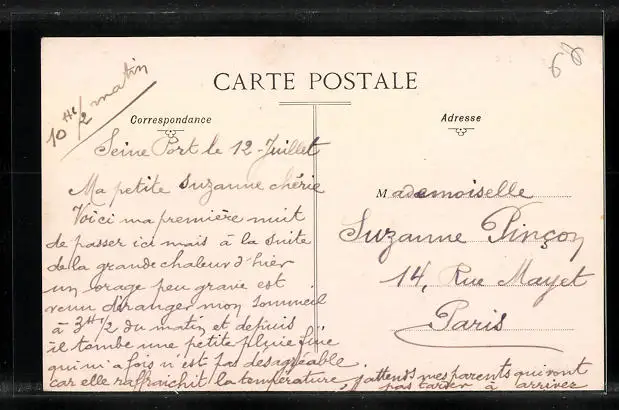 68
10 H 1/2 matin
CARTE POSTALE
Correspondance
Adresse
Seine Port le 12-Juillet
Ma petite Suzanne chérie
Voici ma première nuit
de passer ici mais à la suite
de la grande chaleur d'hier
un orage peu grave est
venu déranger mon sommeil
à 3 H 1/2 du matin et depuis
il tombe une petite pluie fine
qui m'a fois n'est pas desagréable
car elle raffraichit la température, j'attends mes parents qui vont
pas tarder à arrivez
Mademoiselle
Suzanne Pinçon
14, Rue Mayet
Paris